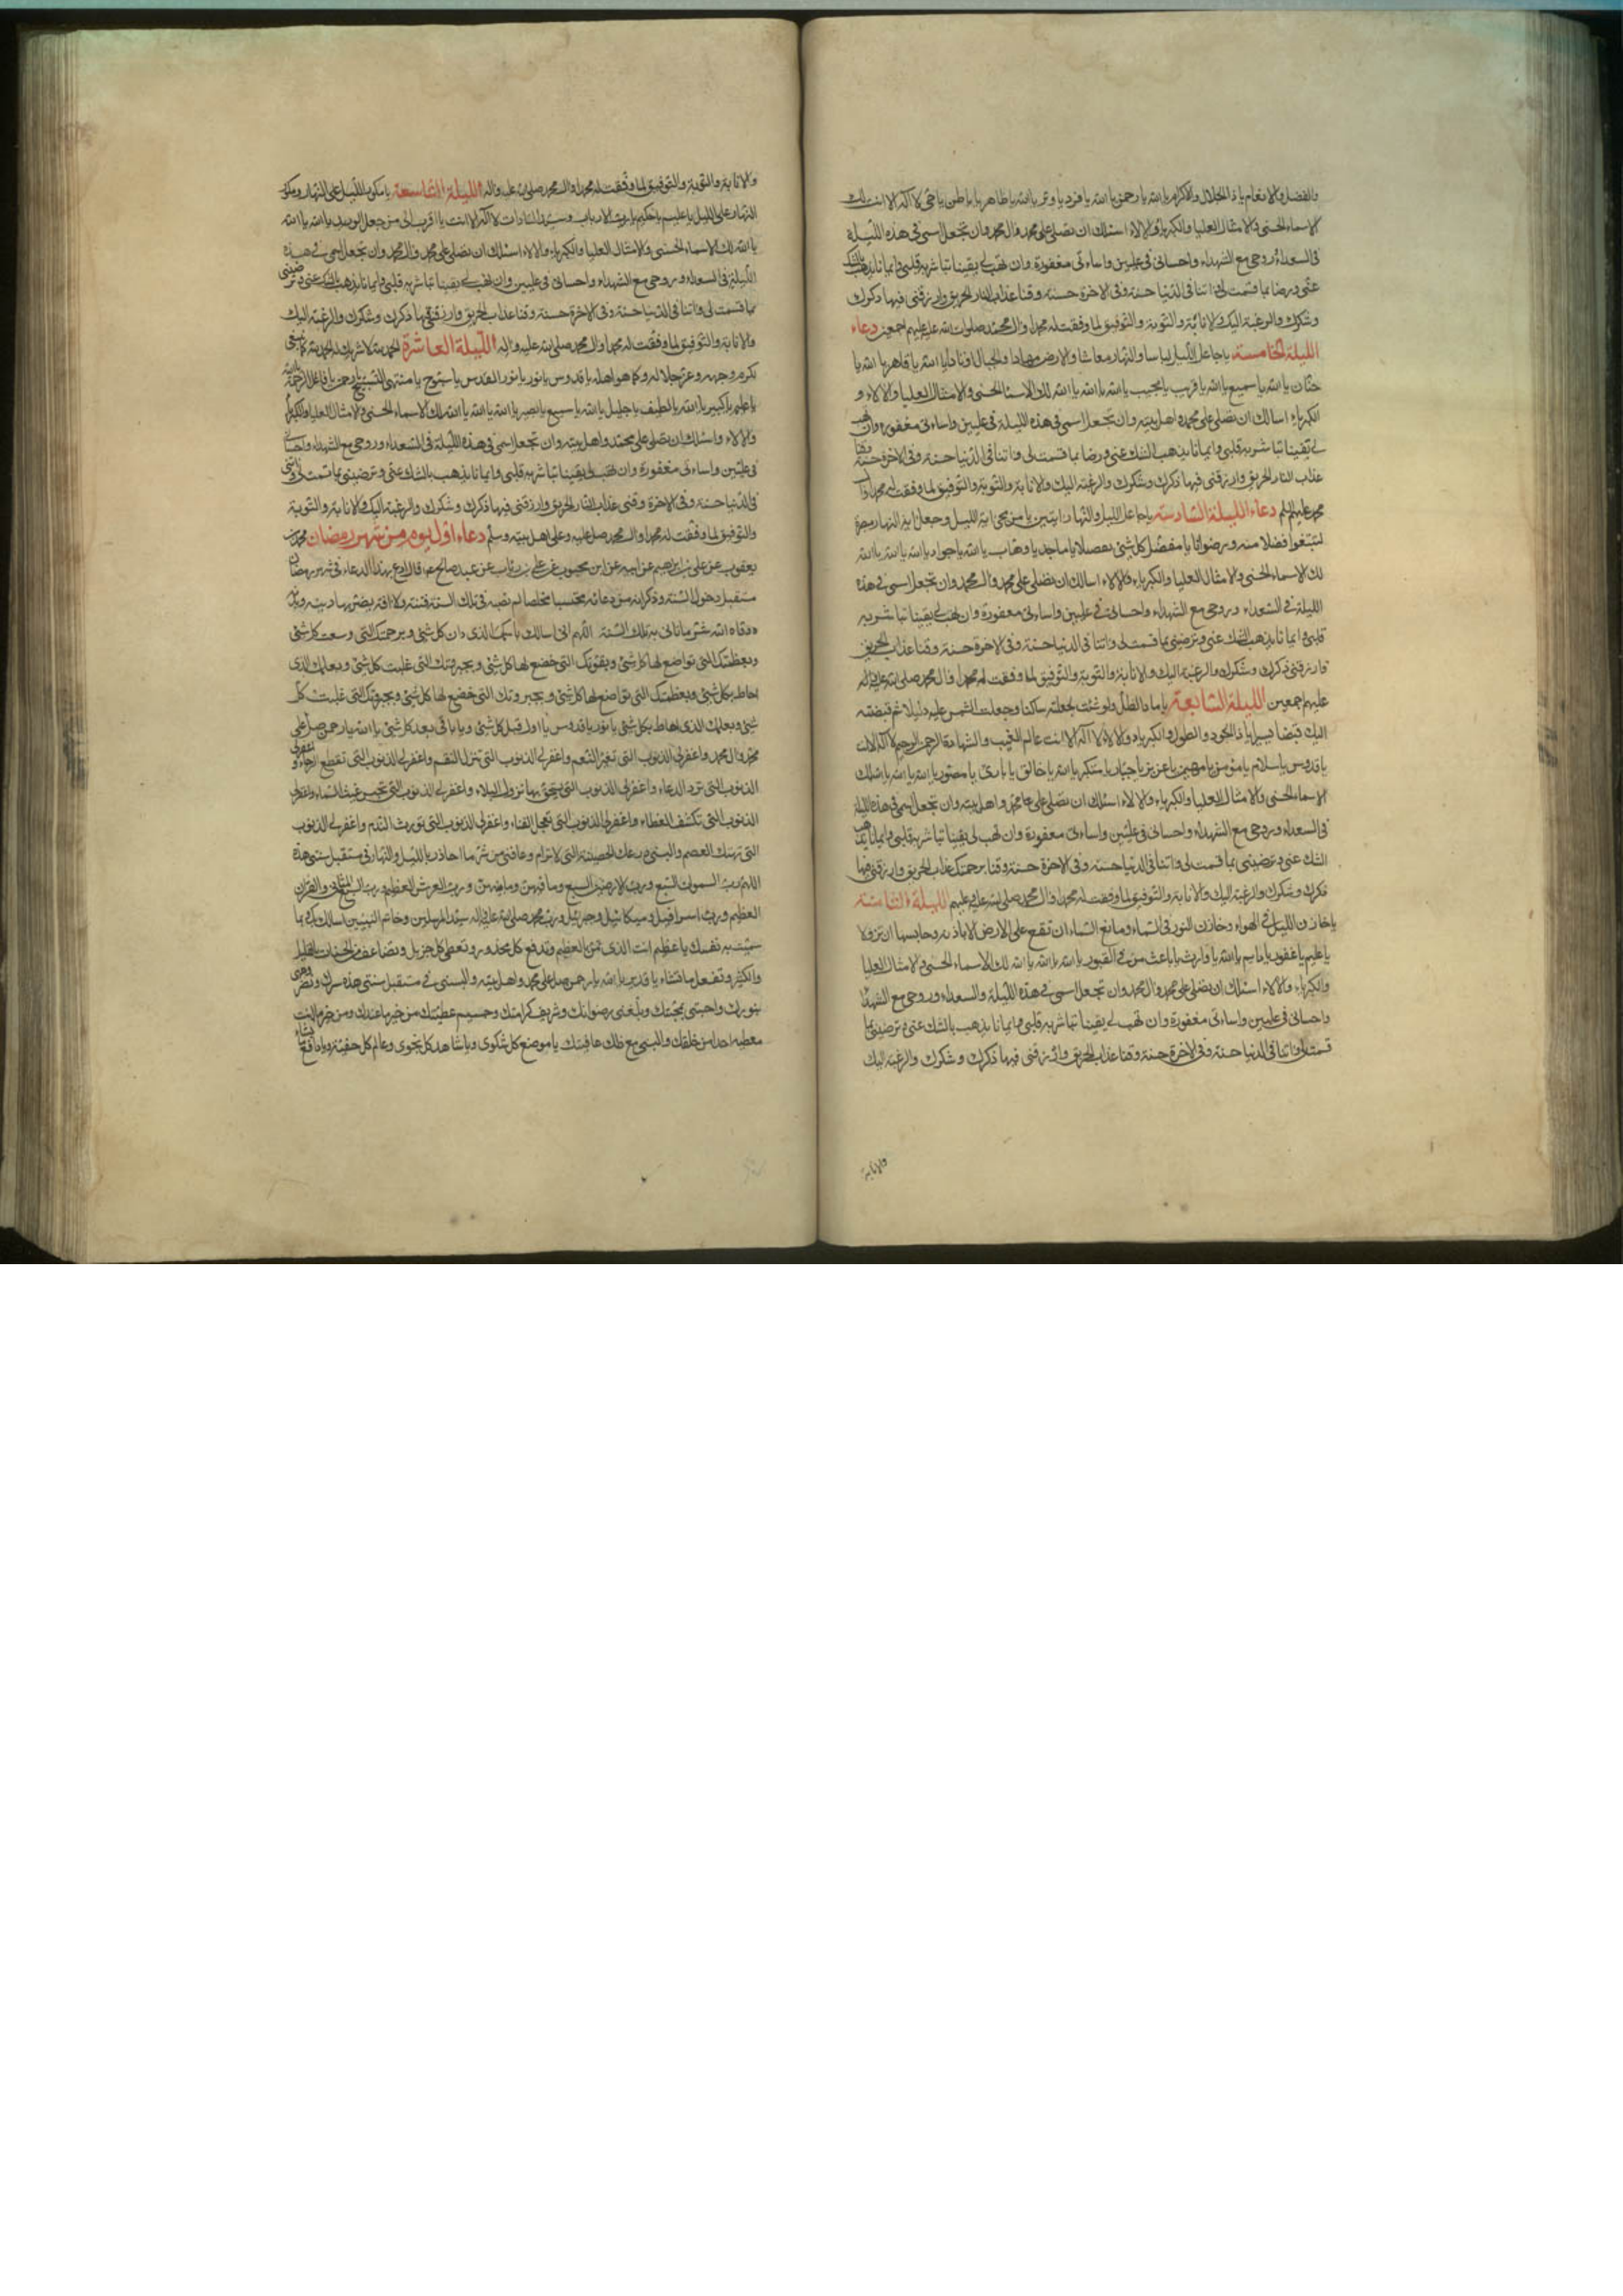 والفضل والانعام يا ذا الجلال والاكرام يا الله يا رحمن يا الله يا فرد يا وتر يا الله يا ظاهر يا باطن يا حي لا اله الا انت لك
الاسماء الحسنى والامثال العليا والكبرياء والالاء اسئلك ان تصلى على محمد وال محمد وان تجعل اسمى فى هذه الليلة
فى السعداء وروحى مع الشهداء واحسانى فى عليين واساءتى مغفورة وان تهب لى يقينا تباشر به قلبى وايمانا يذهب بالشك
عنى ورضا بما قسمت لى اتنا فى الدنيا حسنة وفى الاخرة حسنة وقنا عذاب النار الحريق وارزقنى فيها ذكرك
وشكرك والرغبة اليك والانابة والتوبة والتوفيق لما وفقت له محمدا وال محمد صلوات الله عليه عليهم اجمعين دعاء
الليلة الخامسة يا جاعل الليل لباسا والنهار معاشا والارض مهادا والجبال اوتادا يا الله يا قاهر يا الله يا
حنان يا الله يا سميع يا الله يا قريب يا مجيب يا الله يا الله يا الله لك الاسماء الحسنى والامثال العليا والالاء و
الكبرياء اسالك ان تصلى على محمد واهل بيته وان تجعل اسمى فى هذه الليلة فى عليين واساءتى مغفورة وان تهب
لى يقينا تباشر به قلبى وايمانا يذهب الشك عنى ورضا بما قسمت لى واتنا فى الدنيا حسنة وفى الاخرة حسنة وقنا
عذاب النار الحريق وارزقنى فيها ذكرك وشكرك والرغبة اليك والانابة والتوبة والتوفيق لما وفقت له محمدا وال
محمد عليهم السلم دعاء الليلة السادسة يا جاعل الليل والنهار ايتين يا من محى اية الليل وجعل اية النهار مبصرة
لتبتغوا فضلا منه ورضوانا يا مفصل كل شئ تفصيلا يا ماجد يا وهاب يا الله يا جواد يا الله يا الله يا الله
لك الاسماء الحسنى والامثال العليا والكبرياء والالاء اسالك ان تصلى على محمد وال محمد وان تجعل اسمى فى هذه
الليلة فى السعداء وروحى مع الشهداء واحسانى فى عليين واساءتى مغفورة وان تهب لى يقينا تباشر به
قلبى وايمانا يذهب الشك عنى وترضينى بما قسمت لى واتنا فى الدنيا حسنة وفى الاخرة حسنة وقنا عذاب الحريق
وارزقنى ذكرك وشكرك والرغبة اليك والانابة والتوبة والتوفيق لما وفقت له محمدا وال محمد صلى الله عليه واله
عليهم اجمعين الليلة السابعة يا ماد الظل ولو شئت لجعلته ساكنا وجعلت الشمس عليه دليلا ثم قبضته
اليك قبضا يسيرا يا ذا الجود والطول والكبرياء والالاء لا اله الا انت عالم الغيب والشهادة الرحمن الرحيم لا اله الا انت
يا قدوس يا سلام يا مؤمن يا مهيمن يا عزيز يا جبار يا متكبر يا الله يا خالق يا بارئ يا مصور يا الله يا الله يا الله لك
الاسماء الحسنى والامثال العليا والكبرياء والالاء اسئلك ان تصلى على محمد واهل بيته وان تجعل اسمى فى هذه الليلة
فى السعداء وروحى مع الشهداء واحسانى فى عليين واساءتى مغفورة وان تهب لى يقينا تباشر به قلبى وايمانا يذهب
الشك عنى وترضينى بما قسمت لى واتنا فى الدنيا حسنة وفى الاخرة حسنة وقنا برحمتك عذاب الحريق وارزقنى فيها
ذكرك وشكرك والرغبة اليك والانابة والتوفيق لما وفقت له محمدا وال محمد صلى الله عليه وعليهم الليلة الثامنة
يا خازن الليل فى الهواء وخازن النور فى السماء ومانع السماء ان تقع على الارض الا باذنه وحابسها ان تزولا
يا عليم يا غفور يا دايم يا الله يا وارث يا باعث من فى القبور يا الله يا الله يا الله لك الاسماء الحسنى والامثال العليا
والكبرياء والالاء اسئلك ان تصلى على محمد وال محمد وان تجعل اسمى فى هذه الليلة والسعداء وروحى مع الشهداء
واحسانى فى عليين واساءتى مغفورة وان تهب لى يقينا تباشر به قلبى وايمانا يذهب بالشك عنى وترضينى بما
قسمت لى واتنا فى الدنيا حسنة وفى الاخرة حسنة وقنا عذاب الحريق وارزقنى فيها ذكرك وشكرك والرغبة اليك
والانابة
والانابة والتوبة والتوفيق لما وفقت له محمدا وال محمد صلى الله عليه واله الليلة التاسعة يا مكور الليل على النهار ومكور
النهار على الليل يا عليم يا حكيم يا رب الارباب وسيد السادات لا اله الا انت يا اقرب الى من حبل الوريد يا الله يا الله
يا الله لك الاسماء الحسنى والامثال العليا والكبرياء والالاء اسئلك ان تصلى على محمد وال محمد وان تجعل اسمى فى هذه
الليلة فى السعداء وروحى مع الشهداء واحسانى فى عليين وان تهب لى يقينا تباشر به قلبى وايمانا يذهب بالشك عنى وترضينى
بما قسمت لى واتنا فى الدنيا حسنة وفى الاخرة حسنة وقنا عذاب الحريق وارزقنى فيها ذكرك وشكرك والرغبة اليك
والانابة والتوفيق لما وفقت له محمدا وال محمد صلى الله عليه واله الليلة العاشرة الحمد لله لا شريك له الحمد لله كما ينبغى
لكرم وجهه وعز جلاله وكما هو اهله يا قدوس يا نور يا نور القدس يا سبوح يا منتهى التسبيح يا رحمن يا فاعل الرحمة يا الله
يا عليم يا كبير يا الله يا لطيف يا جليل يا الله يا سميع يا بصير يا الله يا الله يا الله لك الاسماء الحسنى والامثال العليا والكبرياء
والالاء واسئلك ان تصلى على محمد واهل بيته وان تجعل اسمى فى هذه الليلة فى السعداء وروحى مع الشهداء واحسانى
فى عليين واساءتى مغفورة وان تهب لى يقينا تباشر به قلبى وايمانا يذهب بالشك عنى وترضينى بما قسمت لى واتنى
فى الدنيا حسنة وفى الاخرة وقنى عذاب النار الحريق وارزقنى فيها ذكرك وشكرك والرغبة اليك والانابة والتوبة
والتوفيق لما وفقت له محمدا وال محمد صل عليه وعلى اهل بيته وسلم دعاء اول يوم من شهر رمضان محمد بن
يعقوب عن على بن ابراهيم عن ابيه عن ابن محبوب عن على بن رئاب عن عبد صالح عم قال ادع بهذا الدعاء فى شهر رمضان
مستقبل دخول السنة وذكر انه من دعا به محتسبا مخلصا لم تصبه فى تلك السنة فتنة ولا افة يضر بها دينه وبدنه
ووقاه الله شر ما تاتى به تلك السنة اللهم انى اسالك باسمك الذى دان كل شئ وبرحمتك التى وسعت كل شئ
وبعظمتك التى تواضع لها كل شئ وبقوتك التى خضع لها كل شئ وبجبروتك التى غلبت كل شئ وبعلمك الذى
احاط بكل شئ وبعظمتك التى تواضع لها كل شئ وبجبروتك التى خضع لها كل شئ وبجبروتك التى غلبت كل
شئ وبعلمك الذى احاط بكل شئ يا نور يا قدوس يا اول قبل كل شئ ويا باقى بعد كل شئ يا الله يا رحمن صل على
محمد وال محمد واغفر لى الذنوب التى تغير النعم واغفر لى الذنوب التى تنزل النقم واغفر لى الذنوب التى تقطع الرجاء واغفر لى
الذنوب التى ترد الدعاء واغفر لى الذنوب التى يستحق بها نزول البلاء واغفر لى الذنوب التى تحبس غيث السماء واغفر لى
الذنوب التى تكشف الغطاء واغفر لى الذنوب التى تعجل الفناء واغفر لى الذنوب التى تورث الندم واغفر لى الذنوب
التى تهتك العصم والبسنى درعك الحصينة التى لا ترام وعافنى من شر ما احاذر بالليل والنهار فى مستقبل سنتى هذه
اللهم رب السموات السبع ورب الارضين السبع وما فيهن وما بينهن ورب العرش العظيم ورب السبع المثانى والقران
العظيم ورب اسرافيل وميكائيل وجبرئيل ورب محمد صلى الله عليه واله سيد المرسلين وخاتم النبيين اسالك بك بما
سميت به نفسك يا عظيم انت الذى تمن بالعظيم وتدفع كل محذور وتعطى كل جزيل وتضاعف من الحسنات بالقليل
والكثير وتفعل ما تشاء يا قدير يا الله يا رحمن صل على محمد واهل بيته والبسنى فى مستقبل سنتى هذه سترك ونضر وجهى
بنورك واحبنى بمحبتك وبلغنى رضوانك وشريف كرامتك وجسيم عطيتك من خير ما عندك ومن خير ما انت
معطيه احدا من خلقك والبسنى مع ذلك عافيتك يا موضع كل شكوى ويا شاهد كل نجوى وعالم كل خفية ويا دافع ما تشاء